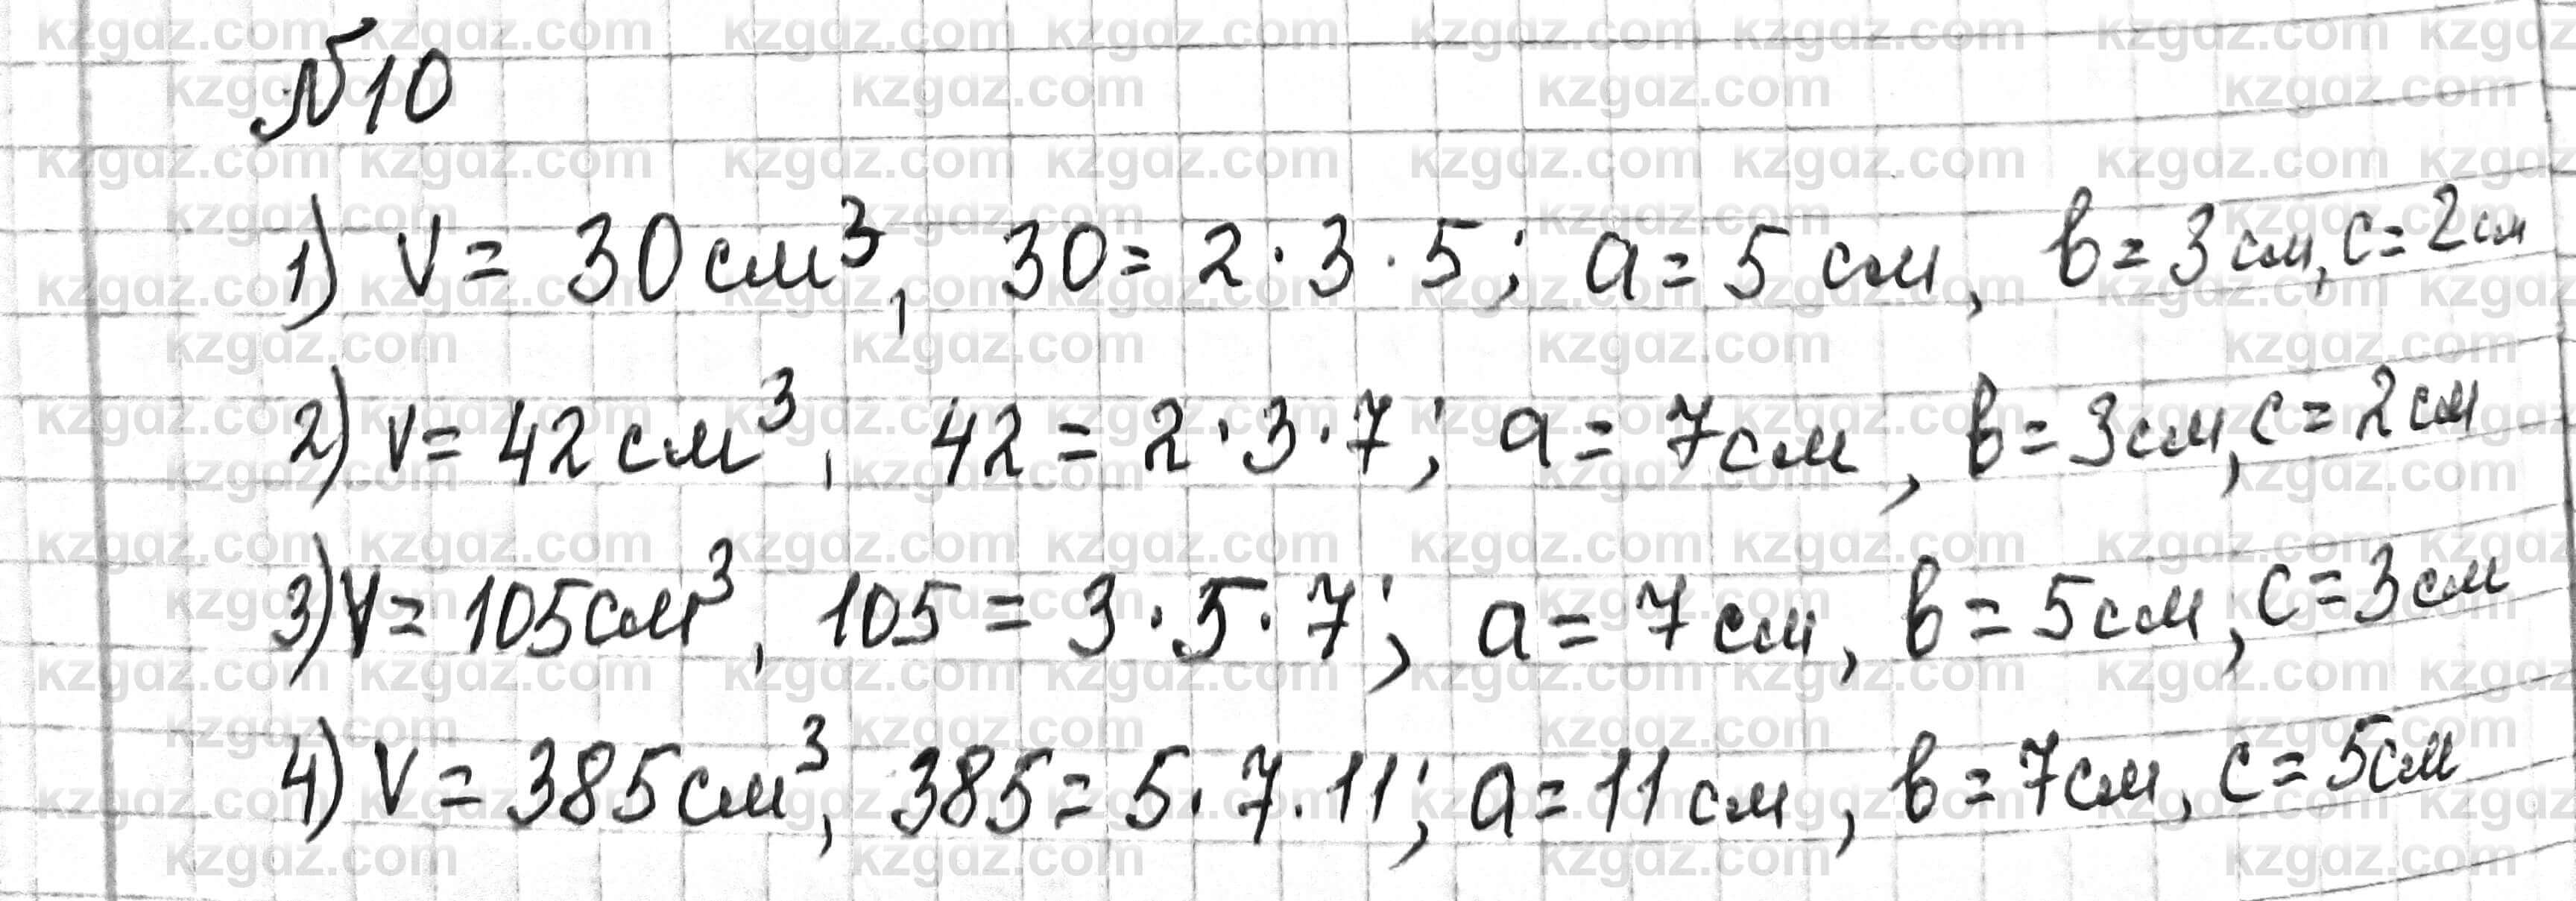 №10
1) V = 30 см³, 30 = 2 · 3 · 5; a = 5 см, b = 3 см, c = 2 см
2) V = 42 см³, 42 = 2 · 3 · 7; a = 7 см, b = 3 см, c = 2 см
3) V = 105 см³, 105 = 3 · 5 · 7; a = 7 см, b = 5 см, c = 3 см
4) V = 385 см³, 385 = 5 · 7 · 11; a = 11 см, b = 7 см, c = 5 см
kzgdz.com